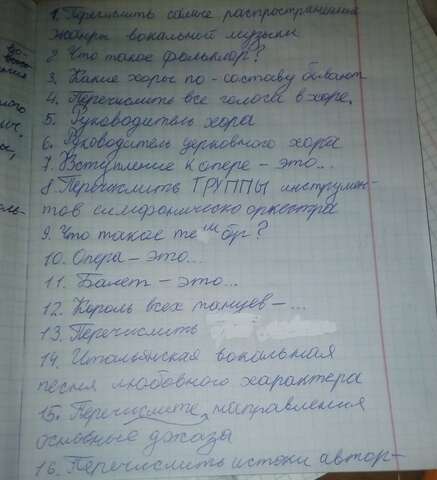 1. Перечислить самые распространённые
жанры вокальной музыки
2. Что такое фольклор?
3. Какие хоры по-составу бывают
4. Перечислить все голоса в хоре.
5. Руководитель хора
6. Руководитель церковного хора
7. Вступление к опере – это...
8. Перечислить ГРУППЫ инструмен-
тов симфоническо оркестра
9. Что такое тембр?
10. Опера – это...
11. Балет – это...
12. Король всех танцев – ...
13. Перечислить
14. Итальянская вокальная
песня любовного характера
15. Перечислите направления
основные джазы
16. Перечислить истоки автор-